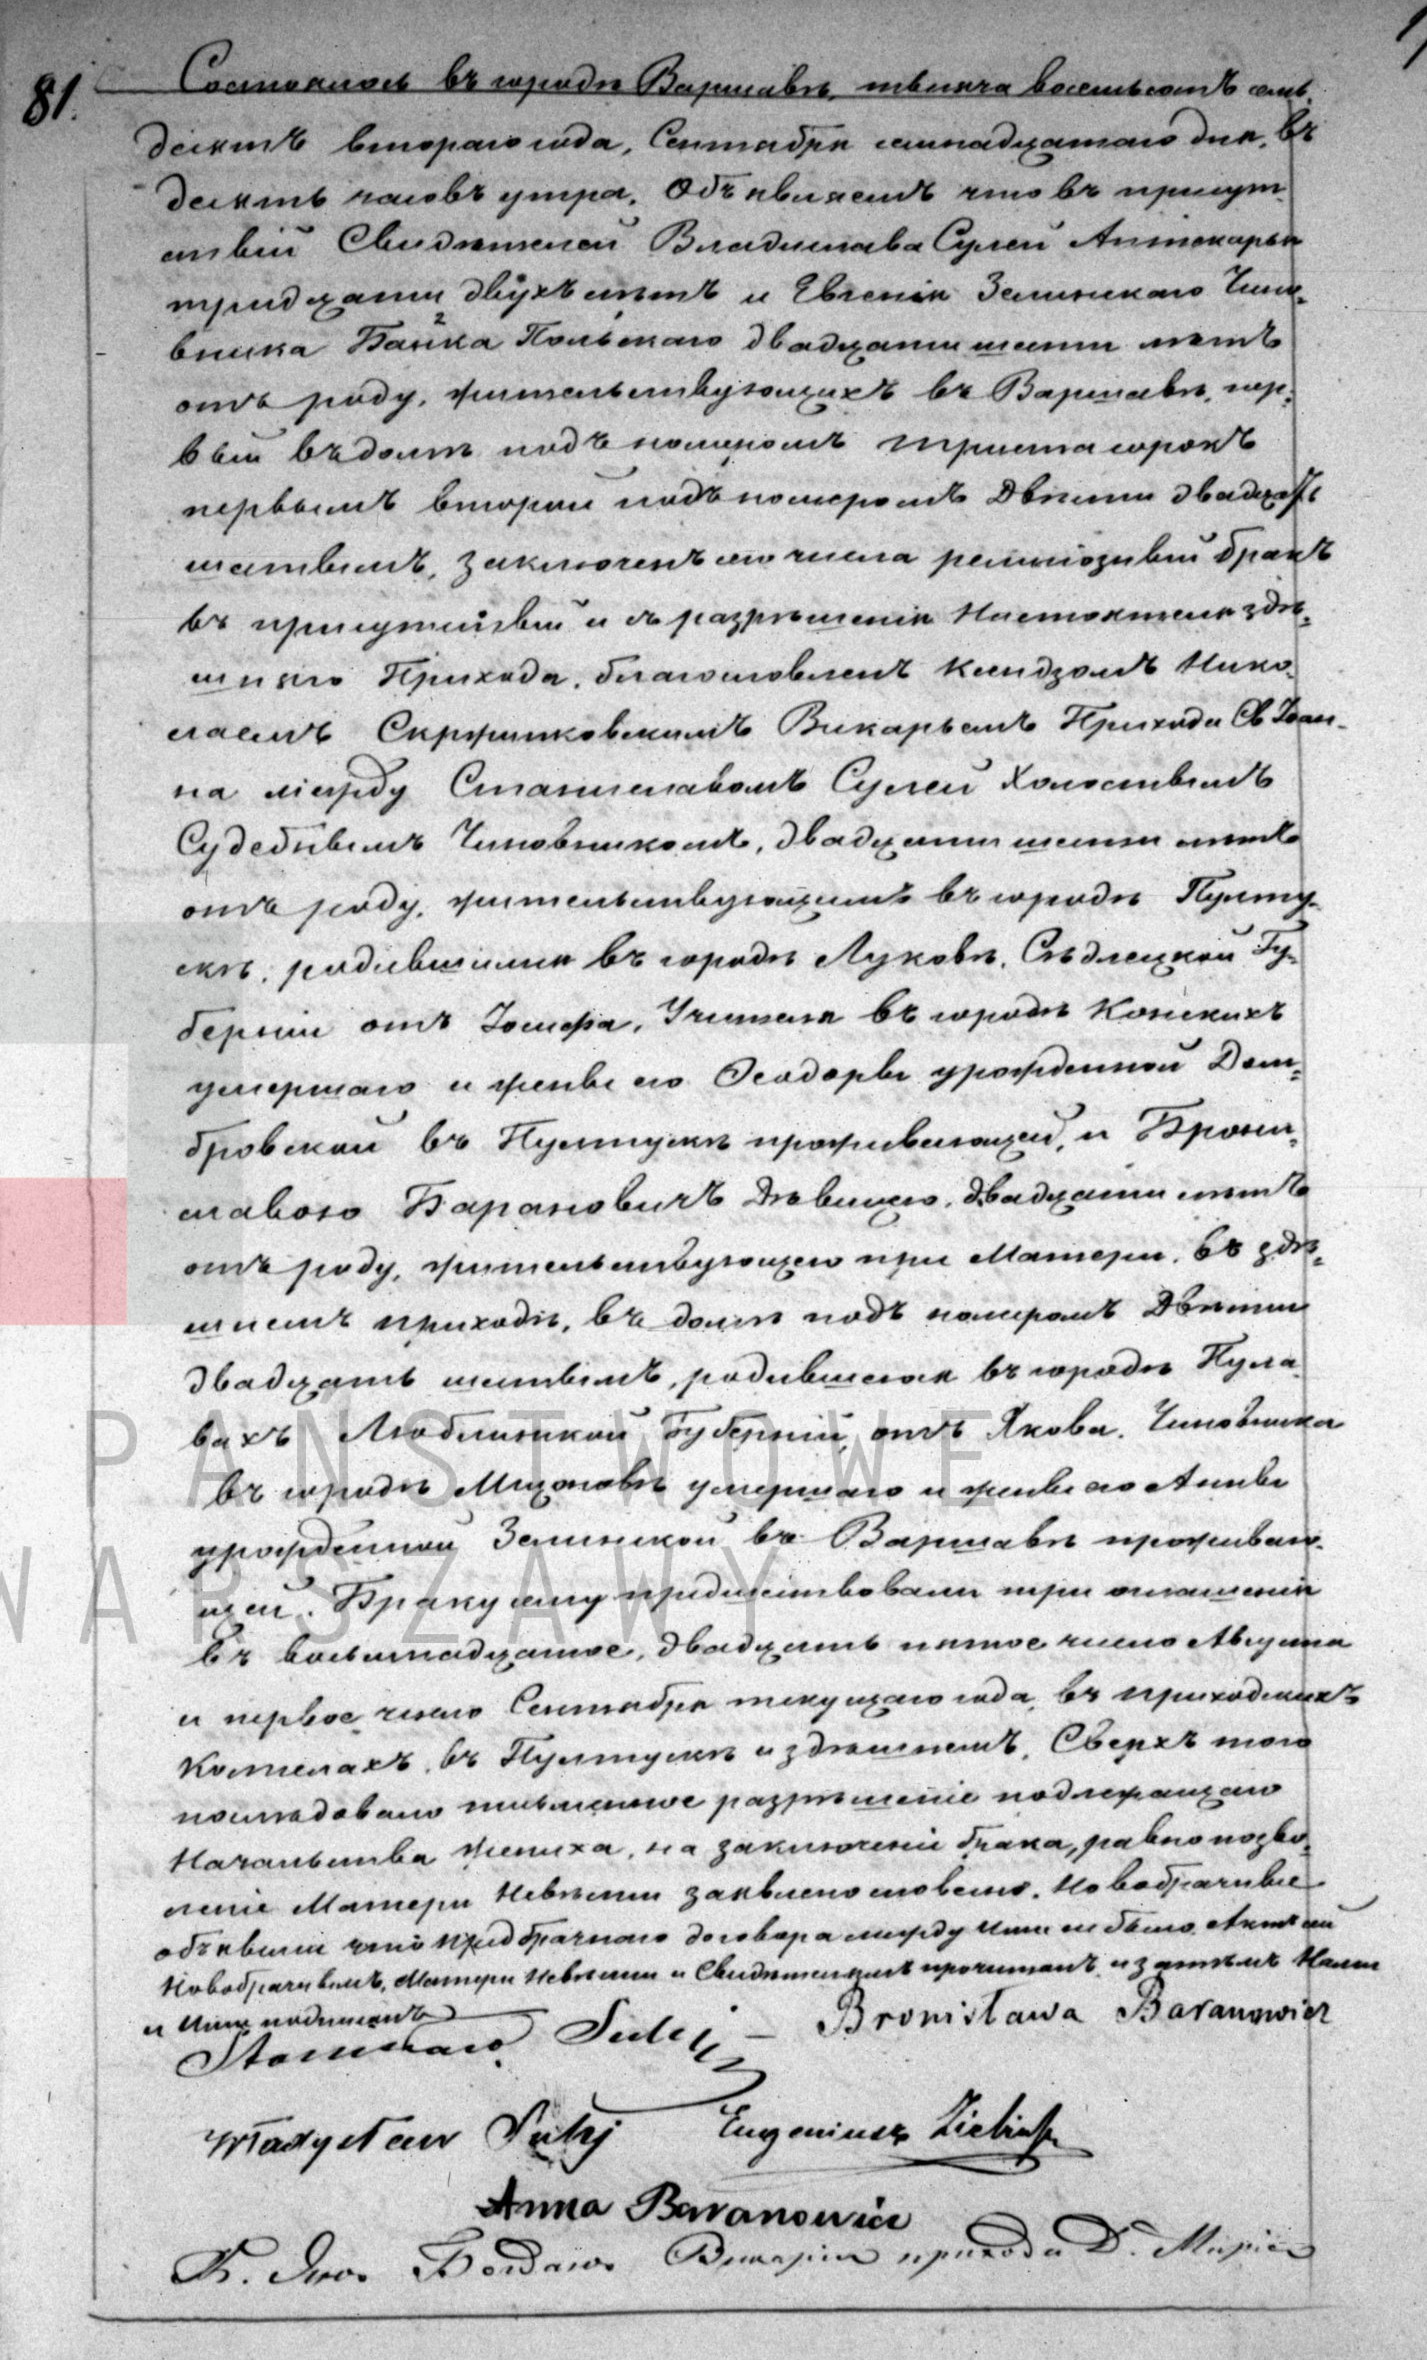 81.
Состоялось въ городѣ Варшавѣ, тысяча восемьсотъ семь-
десятъ втораго года, Сентября семнадцатаго дня, въ
десять часовъ утра. Объявляемъ что въ присут-
ствіи Свидѣтелей Владислава Сулей Аптекаря
тридцати двухъ лѣтъ и Евгенія Зелинскаго Чино-
вника Банка Польскаго двадцати шести лѣтъ
отъ роду, жительствующихъ въ Варшавѣ, пер-
вый въ домѣ подъ номеромъ триста сорокъ
первымъ второй подъ номеромъ Двѣсти двадцать
шестымъ, заключенъ сего числа религіозный бракъ
въ присутствіи и съ разрѣшенія Настоятеля здѣ-
шняго Прихода, благословленъ Ксендзомъ Нико-
лаемъ Викаріемъ Прихода Св Іоан-
на между Станиславомъ Сулей Холостымъ
Судебнымъ Чиновникомъ, двадцати шести лѣтъ
отъ роду, жительствующимъ въ городѣ Пулту-
скѣ, родившимся въ городѣ Луковѣ, Сѣдлецкой Гу-
берніи отъ Іосифа, Учителя въ городѣ Конскихъ
умершаго и жены его Ѳеодоры урожденной Дом-
бровской въ Пултускѣ проживающей, и Брони-
славою Барановичъ Дѣвицею, двадцати лѣтъ
отъ роду, жительствующею при Матери, въ здѣ-
шнемъ приходѣ, въ домѣ подъ номеромъ Двѣсти
двадцать шестымъ, родившеюся въ городѣ Пула-
вахъ Люблинской Губерніи, отъ Якова, Чиновника
въ городѣ Мщоновѣ умершаго и жены его Анны
урожденной Зелинской въ Варшавѣ проживаю-
щей. Браку сему предшествовали три оглашенія
въ восьмнадцатое, двадцать пятое число Августа
и первое число Сентября текущаго года, въ приходскихъ
Костелахъ, въ Пултускѣ и здѣшнемъ, Сверхъ того
послѣдовало письменное разрѣшеніе подлежащаго
Начальства жениха, на заключеніе брака, равно позво-
леніе Матери Невѣсты заявлено словесно. Новобрачные
объявили что предбрачнаго договора между ними не было. Актъ сей
Новобрачнымъ, Матери Невѣсты и Свидѣтелямъ прочитанъ и затѣмъ Нами
и ими подписанъ
Stanisław Sulej Bronisława Baranowicz
Władysław Sulej Eugeniusz Zieliński
Anna Baranowicz
К. Викарій прихода Д. Маріи
PAŃSTWOWE
WARSZAWY